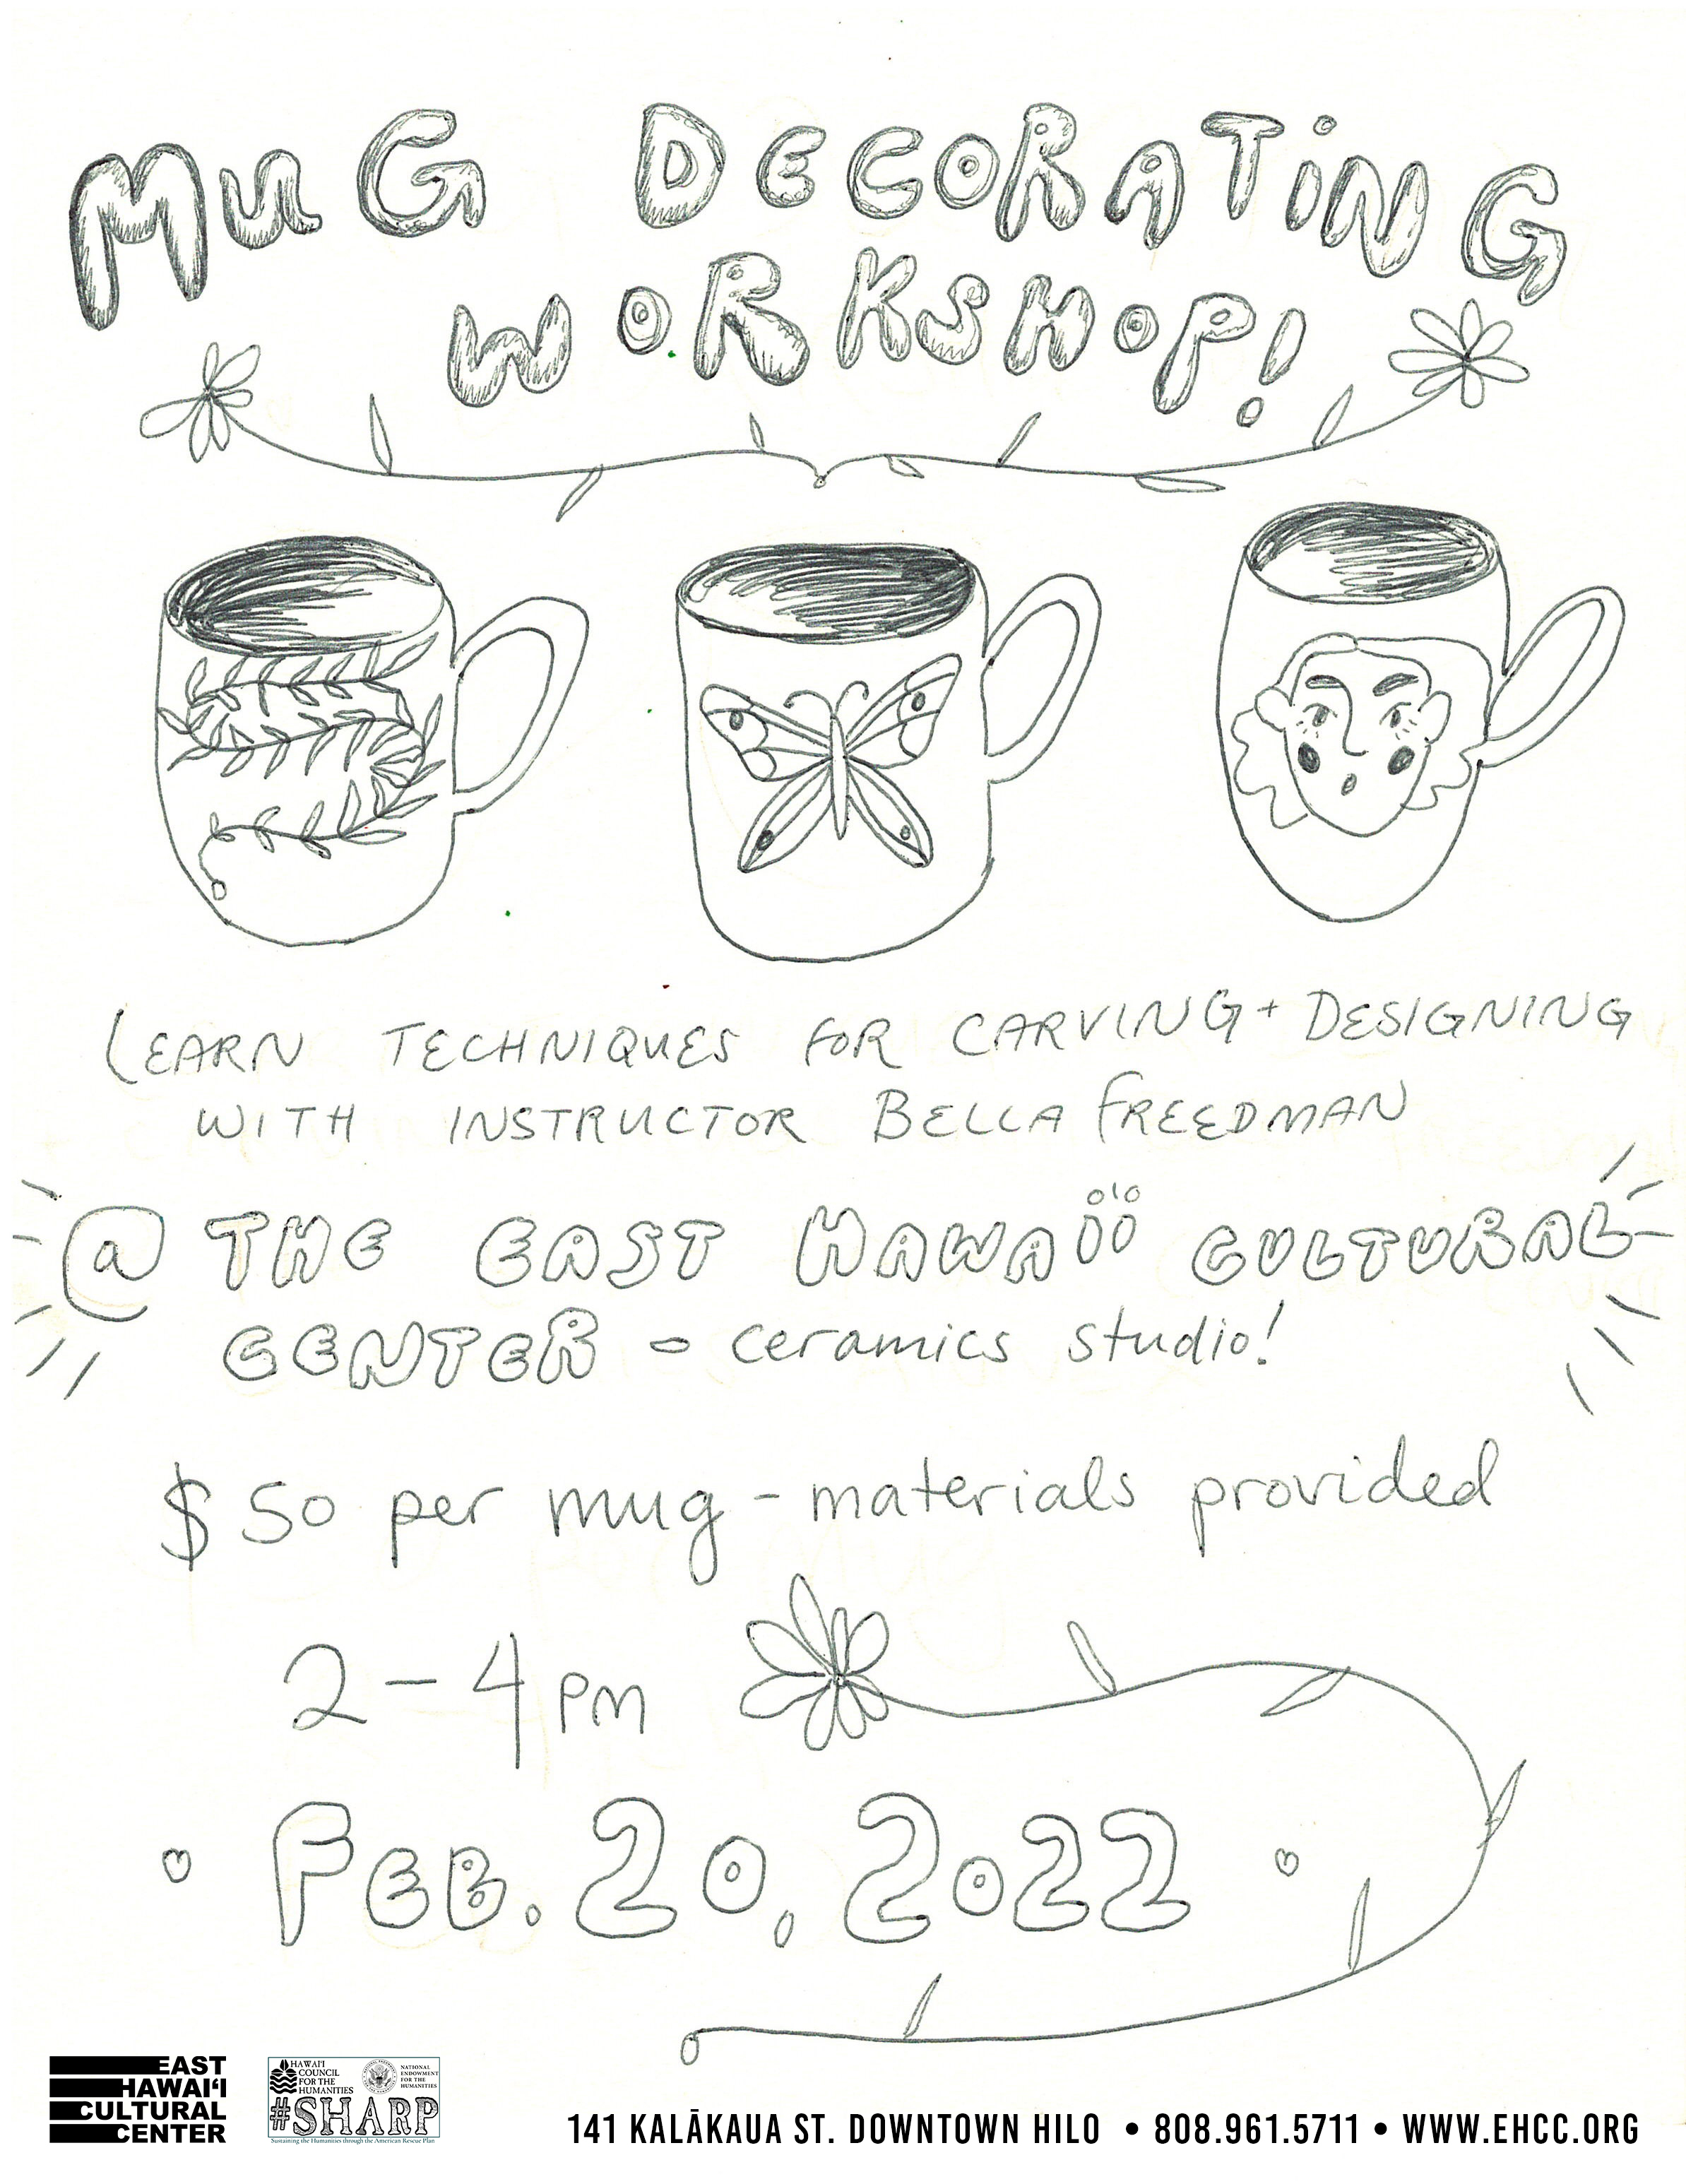 MuG DECORATiNG
WORKSHOP!
LEARN TECHNIQUES FOR CARVING + DESIGNING
WITH INSTRUCTOR BELLA FREEDMAN
@ THE EAST HAWAI'I CULTURAL
CENTER - ceramics studio!
$50 per mug - materials provided
2-4 PM
FEB. 20, 2022
EAST
HAWAIʻI
CULTURAL
CENTER
HAWAIʻI
COUNCIL
FOR THE
HUMANITIES
NATIONAL
ENDOWMENT
FOR THE
HUMANITIES
#SHARP
Sustaining the Humanities through the American Rescue Plan
141 KALĀKAUA ST. DOWNTOWN HILO • 808.961.5711 • WWW.EHCC.ORG